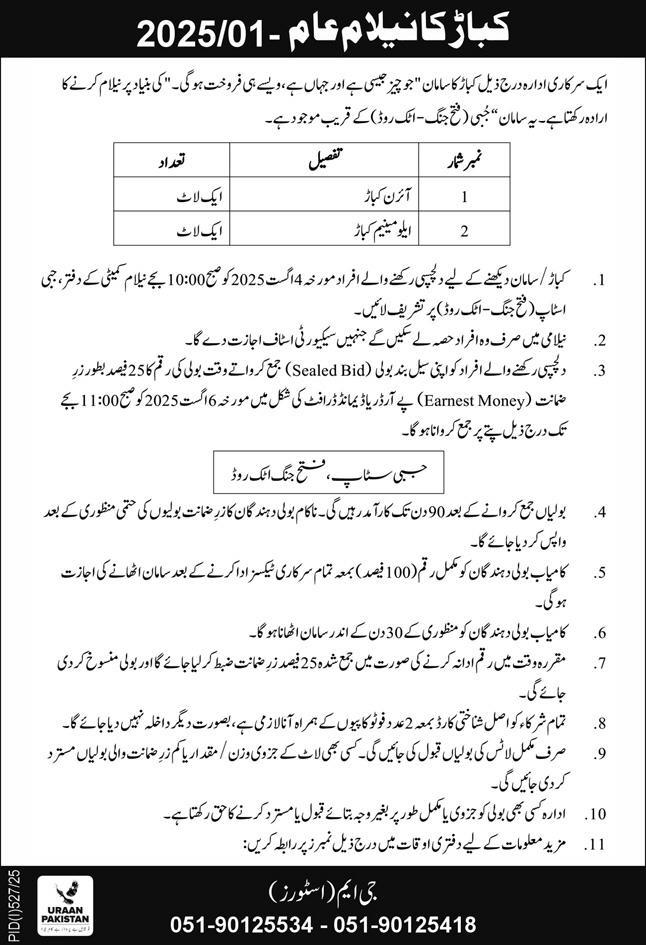 کباڑ کا نیلام عام -2025/01
ایک سرکاری ادارہ درج ذیل کباڑ کا سامان "جو چیز جیسی ہے اور جہاں ہے، ویسے ہی فروخت ہوگی۔" کی بنیاد پر نیلام کرنے کا
ارادہ رکھتا ہے۔ یہ سامان “جُبی (فتح جنگ-اٹک روڈ) کے قریب موجود ہے۔
نمبر شمار تفصیل تعداد
1 آئرن کباڑ ایک لاٹ
2 ایلومینیم کباڑ ایک لاٹ
1. کباڑ/سامان دیکھنے کے لیے دلچسپی رکھنے والے افراد مورخہ 4 اگست 2025 کو صبح 10:00 بجے نیلام کمیٹی کے دفتر، جبی
اسٹاپ (فتح جنگ-اٹک روڈ) پر تشریف لائیں۔
2. نیلامی میں صرف وہ افراد حصہ لے سکیں گے جنہیں سیکیورٹی اسٹاف اجازت دے گا۔
3. دلچسپی رکھنے والے افراد کو اپنی سیل بند بولی (Sealed Bid) جمع کرواتے وقت بولی کی رقم کا 25 فیصد بطور زرِ
ضمانت (Earnest Money) پے آرڈر یا ڈیمانڈ ڈرافٹ کی شکل میں مورخہ 6 اگست 2025 کو صبح 11:00 بجے
تک درج ذیل پتے پر جمع کروانا ہوگا۔
جبی سٹاپ، فتح جنگ اٹک روڈ
4. بولیاں جمع کروانے کے بعد 90 دن تک کارآمد رہیں گی۔ ناکام بولی دہندگان کا زرِ ضمانت بولیوں کی حتمی منظوری کے بعد
واپس کر دیا جائے گا۔
5. کامیاب بولی دہندگان کو مکمل رقم (100 فیصد) بمعہ تمام سرکاری ٹیکسز ادا کرنے کے بعد سامان اٹھانے کی اجازت
ہوگی۔
6. کامیاب بولی دہندگان کو منظوری کے 30 دن کے اندر سامان اٹھانا ہوگا۔
7. مقررہ وقت میں رقم ادا نہ کرنے کی صورت میں جمع شدہ 25 فیصد زرِ ضمانت ضبط کر لیا جائے گا اور بولی منسوخ کر دی
جائے گی۔
8. تمام شرکاء کو اصل شناختی کارڈ بمعہ 2 عدد فوٹو کاپیوں کے ہمراہ آنا لازمی ہے، بصورت دیگر داخلہ نہیں دیا جائے گا۔
9. صرف مکمل لاٹس کی بولیاں قبول کی جائیں گی۔ کسی بھی لاٹ کے جزوی وزن/مقدار یا کم زرِ ضمانت والی بولیاں مسترد
کر دی جائیں گی۔
10. ادارہ کسی بھی بولی کو جزوی یا مکمل طور پر بغیر وجہ بتائے قبول یا مسترد کرنے کا حق رکھتا ہے۔
11. مزید معلومات کے لیے دفتری اوقات میں درج ذیل نمبرز پر رابطہ کریں:
جی ایم (اسٹورز)
051-90125534 - 051-90125418
URAAN
PAKISTAN
PID(I)527/25